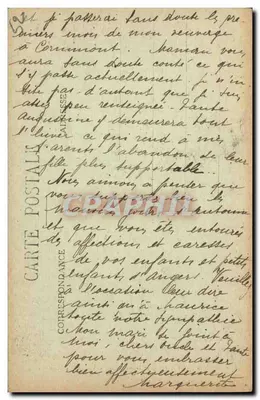 et je passerai sans doute les pre
miers mois de mon veuvage
à Commont. Maman vous
aura sans doute conté ce qui
s'y passe actuellement je n'in
siste pas d'autant que je suis
assez peu renseignée. Tante
Augustine y demeurera tout
l'hiver ce qui rend à mes
parents l'abandon de leur
fille plus supportable.
Nous aimons à penser que
vous
mauvais
et que vous êtes entourés
des affections et caresses
de vos enfants et petits
enfants d'Angers. Veuillez
à l'occasion leur dire
ainsi qu'à Maurice
toute notre sympathie
Mon mari se joint à
moi, chers oncle et tante
pour vous embrasser
bien affectueusement
Marguerite
CARTE POSTALE
CORRESPONDANCE